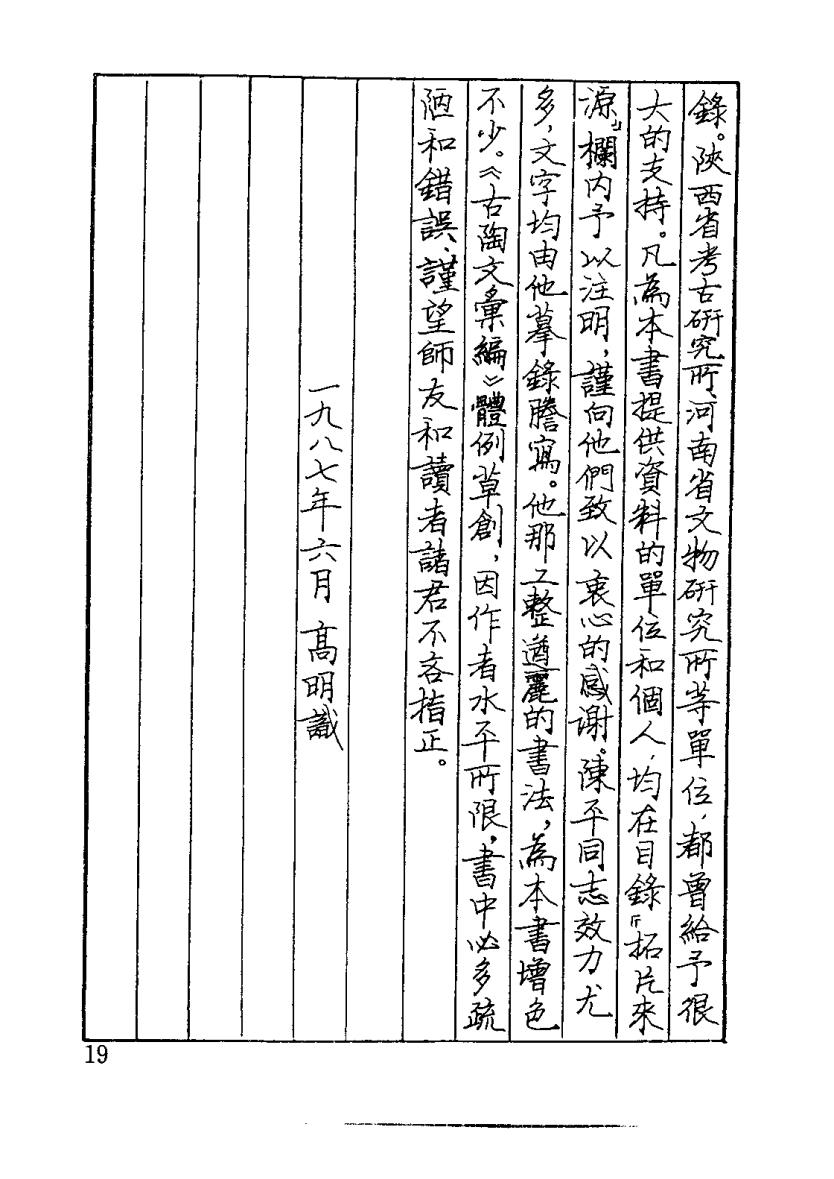 錄。陝西省考古研究所、河南省文物研究所等單位，都曾給予很
大的支持。凡為本書提供資料的單位和個人，均在目錄『拓片來
源』欄內予以注明，謹向他們致以衷心的感谢。陳平同志效力尤
多，文字均由他摹錄謄寫。他那工整遒麗的書法，為本書增色
不少。《古陶文彙編》體例草創，因作者水平所限，書中必多疏
陋和錯誤，謹望師友和讀者諸君不吝指正。
一九八七年六月 高明識
19